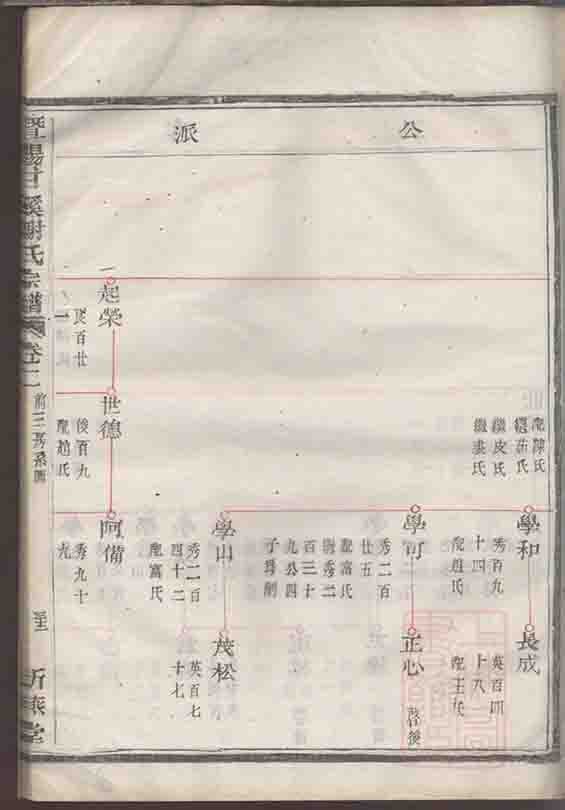 公派
配陳氏
繼茹氏
繼皮氏
學和
秀百九
十四
配趙氏
長成
英百四
十八
配王氏
學可
秀二百
廿五
配富氏
嗣秀二
百三十
九公四
子爲嗣
正心
啓後
學山
秀二百
四十二
配富氏
茂松
英百七
十七
一
起榮
民百廿
一
世德
俊百九
配趙氏
阿備
秀九十
九
暨陽甘溪謝氏宗譜
卷二
前三房系圖